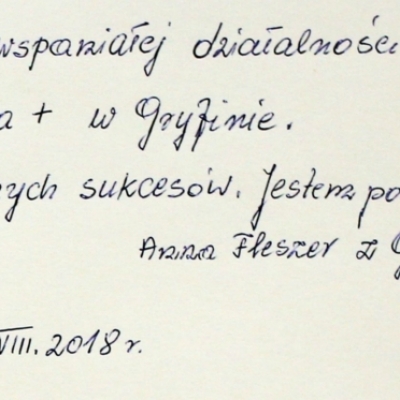 wspaniałej działalności
a + w Gryfinie.
nych sukcesów. Jestem po
Anna Fleszer z G
VIII. 2018 r.